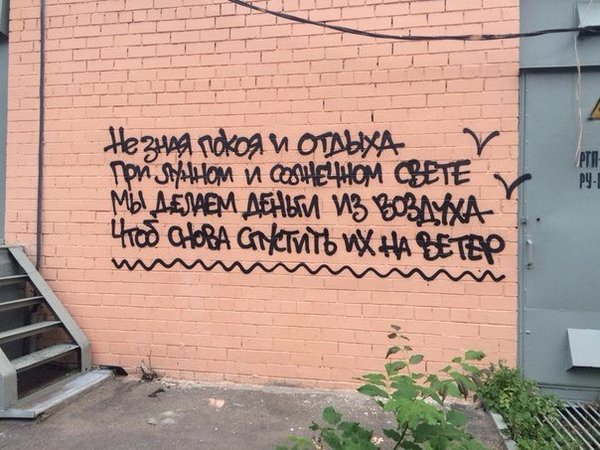 Не зная покоя и отдыха
При лунном и солнечном свете
Мы делаем деньги из воздуха
Чтоб снова спустить их на ветер
РТП-
РУ-